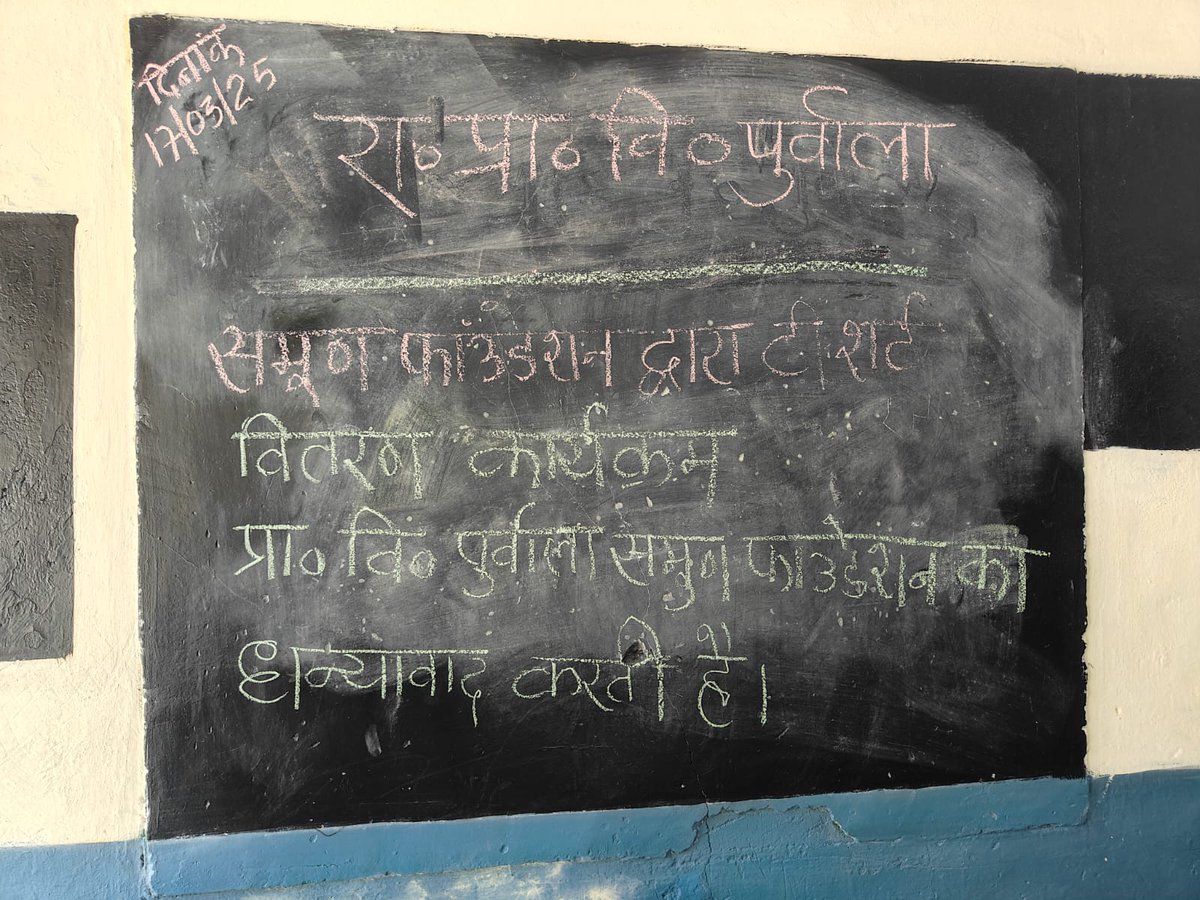 दिनांक
17/03/25
रा० प्रा० वि० पुर्वाला
समूण फाउंडेशन द्वारा टी शर्ट
वितरण कार्यक्रम
प्रा० वि० पुर्वाला समुण फाउडेशन का
धान्यावाद करती है।